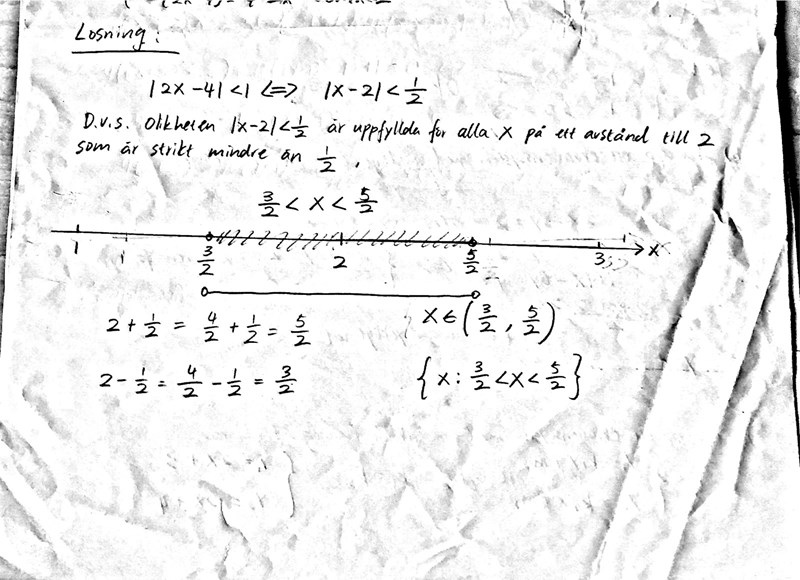 Losning:
|2x-4|<1 <=> |x-2|<1/2
D.v.s. Olikheten |x-2|<1/2 är uppfyllda för alla x på ett avstånd till 2
som är strikt mindre än 1/2.
3/2 < x < 5/2
1 3/2 2 5/2 3 x
2+1/2 = 4/2+1/2 = 5/2 x∈(3/2, 5/2)
2-1/2 = 4/2-1/2 = 3/2 {x: 3/2<x<5/2}